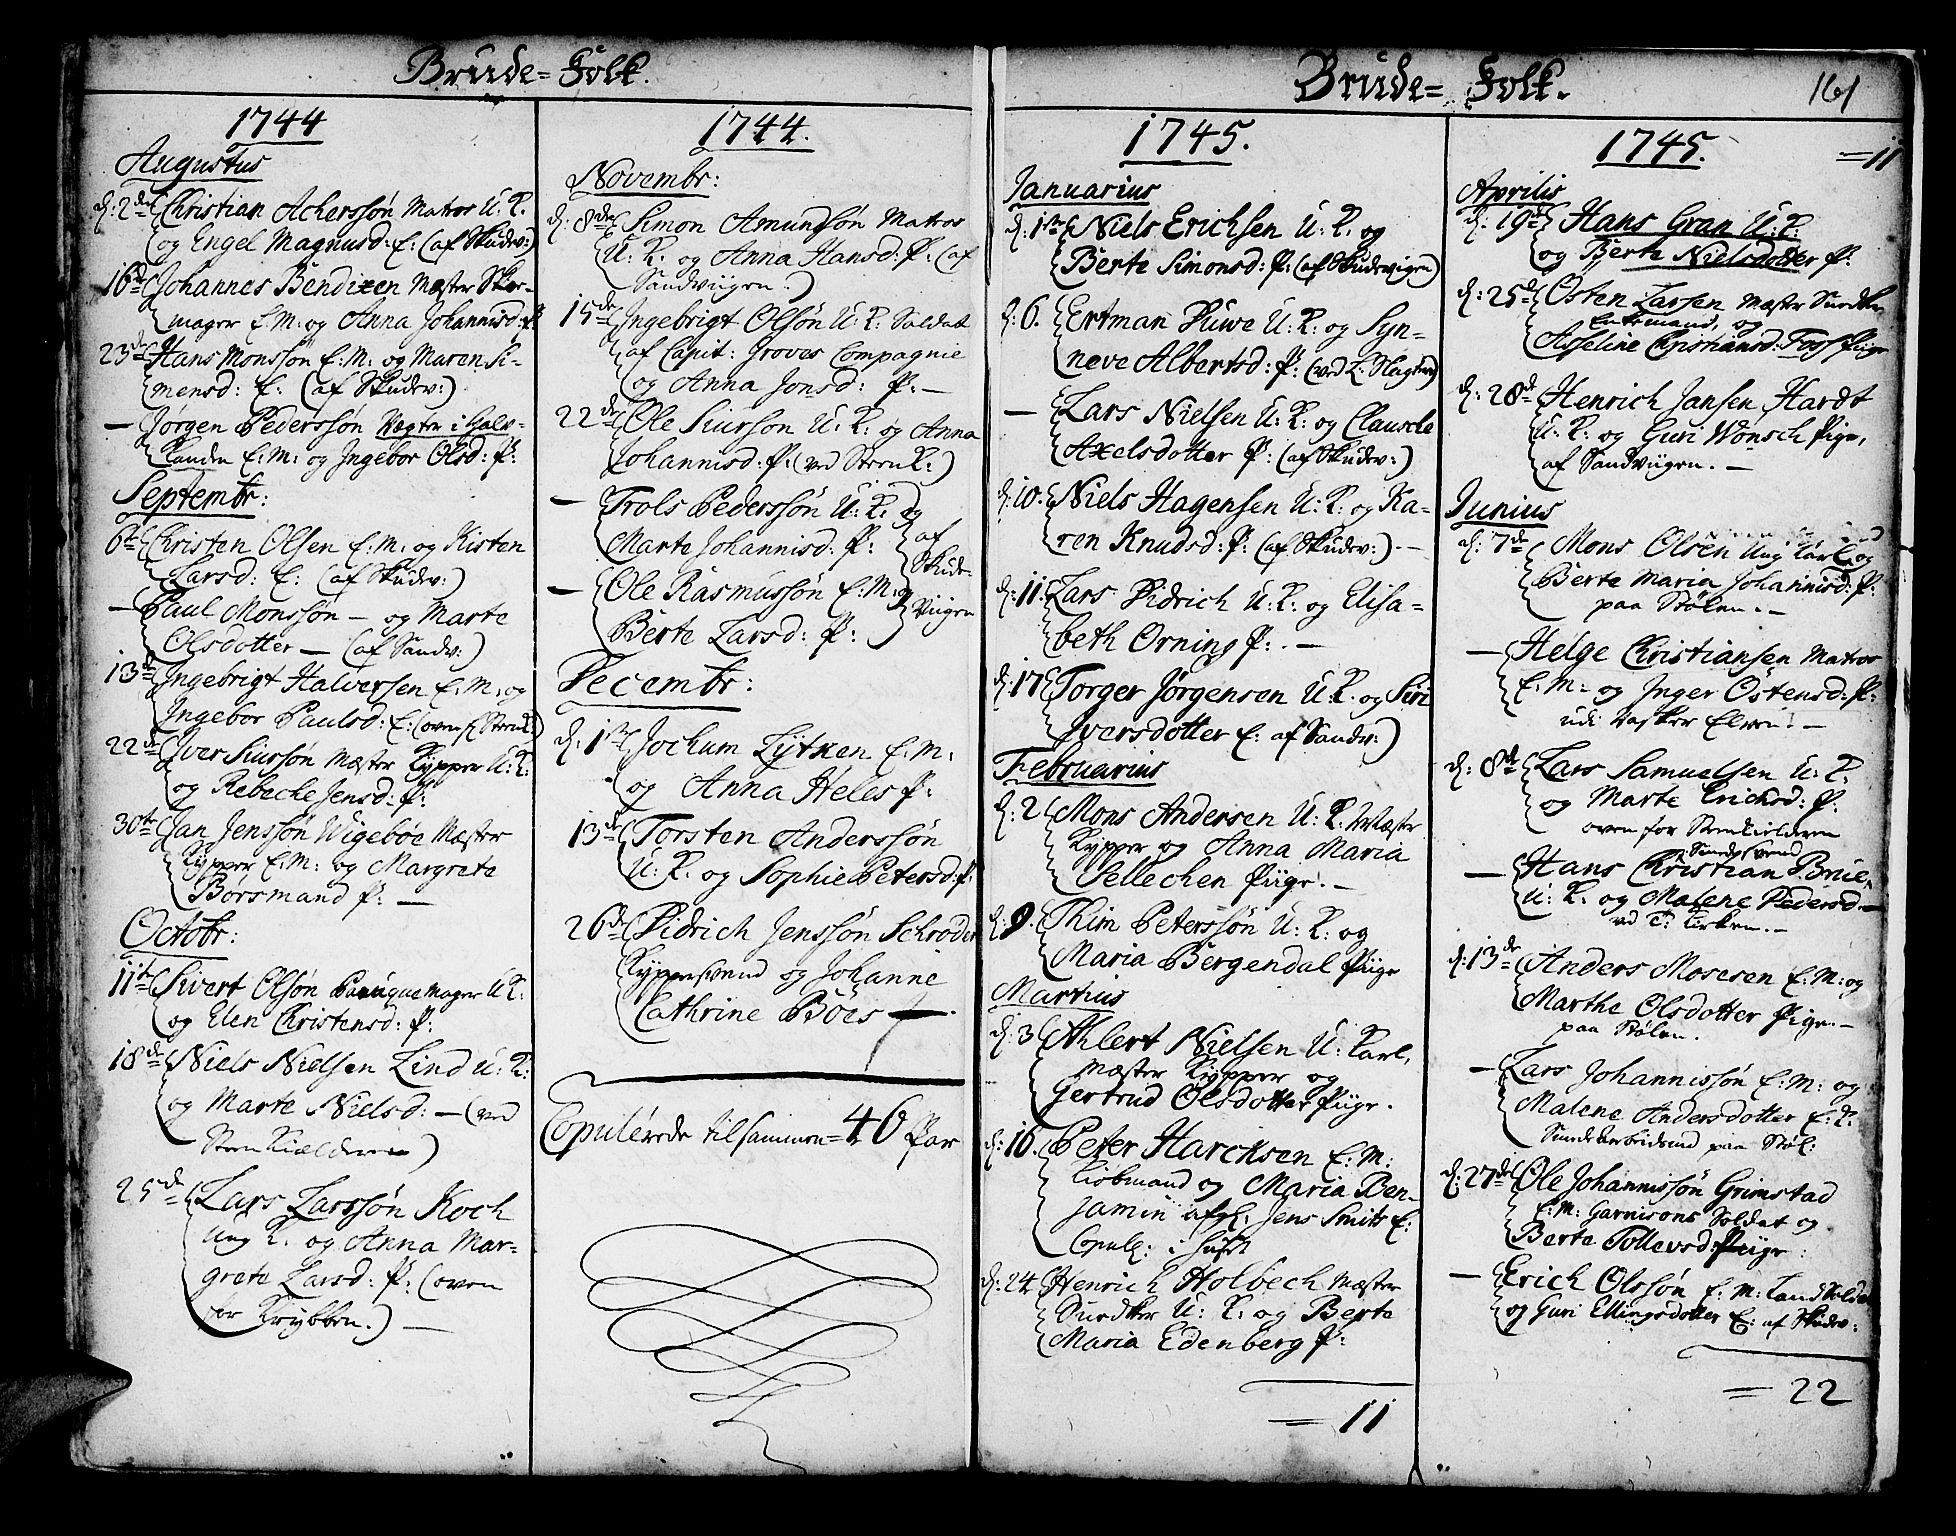 Brude=Folk.
1744
Augustus
d: 2de Christian Acherssøn Matros U: K.
og Engel Magnusd: E: (af Skudev:)
16de Johannes Bendixen Mæster Skoe-
mager E: M: og Anna Johannisd: P:
23de Hans Monssøn E: M: og Maren Si-
mensd: E: (af Skudev:)
— Jørgen Pederssøn Vægter i
E: M: og Ingebor Olsd: P:
Septembr:
6te Christen Olsen E: M: og Kisten
Larsd: E: (af Skudev:)
— Paul Monssøn — og Marte
Olsdotter — (af Sandv:)
13de Ingebrigt Halversen E: M: og
Ingebor Paulsd: E: (oven f. Stenk:)
22de Iver Siurssøn Mæster Kypper U: K:
og Rebecke Jensd: P:
30te Jan Jenssøn Wigebøe Mæster
Kypper E: M: og Margrete
Borsmand P: —
Octobr:
11te Sivert Olsøn Paruque Mager U: K:
og Elen Christensd: P:
18de Niels Nielsen Lind U: K:
og Marte Nielsd: — (ved
Steen Kielderen)
25de Lars Larssøn Koch
Ung K. og Anna Mar-
grete Larsd: P: (oven
for Krybben.) —
1744.
Novembr:
d: 8de Simon Amundsøn Matros
U: K: og Anna Hansd: P: (af
Sandviigen.)
15de Ingebrigt Olsøn U: K: Soldat
af Capit: Groves Compagnie
og Anna Jonsd: P: —
22de Ole Siurson U: K: og Anna
Johannisd: P: (ved Steen K:)
— Trols Pederssøn U: K: og
Marte Johannisd: P:
— Ole Rasmussøn E: M: og
Berte Larsd: P:
af
Skude-
Viigen
Decembr:
d: 1ste Jochum Lytken E: M:
og Anna Heles P:
13de Torsten Anderssøn
U: K. og Sophie Petersd: P:
26de Didrich Jenssøn Schrøder
Kyppersvend og Johanne
Cathrine Böes —
Copulerede tilsammen = 46 Par
Brude=Folk.
161
1745.
Januarius
d: 1ste Niels Erichsen U: K. og
Berte Simonsd: P: (af Skudevigen)
d: 6. Ertman Duwe U: K: og Syn-
neve Albertsd: P: (ved K: Slagteren)
— Lars Nielsen U: K: og Clausele
Axelsdotter P: (af Skudev:)
d: 10. Niels Hagensen U: K: og Ka-
ren Knudsd: P: (af Skudev:). —
d: 11. Lars Didrich U: K: og Elisa-
beth Orning P: . —
d: 17 Torger Jørgensen U: K. og Siri
Iversdotter E: af Sandv:)
Februarius
d: 2 Mons Andersen U: K. Mæster
Kypper og Anna Maria
Sellechen Piige. —
d: 9. Thim Peterssøn U: K: og
Maria Bergendal Piige
Martius
d: 3 Ahlert Nielsen U: Karl,
Mæster Kypper og
Gertrud Olsdotter Piige.
d: 16. Peter Harcksen E: M:
Kiøbmand og Maria Ben-
jamin afgl: Jens Smits E:
Copul: i Huset
d: 24. Henrich Holbech Mæster
Snedker U: K: og Berte
Maria Edenberg P:
= 11
1745.
= 11
Aprilis
d: 19de Hans Gran U: K:
og Berte Nielsdotter P:
d: 25de Osten Larsen Mæster Snedker
Enkemand, og
Asseline Christiansd: Fogh Piige
d: 28de Henrich Jansen Hardt
U: K: og Guri Wonsch Pige,
af Sandviigen. —
Junius
d: 7de Mons Olsen Ung Karl og
Berte Maria Johannisd: P:
paa Stølen. —
— Helge Christiansen Matros
E: M: og Inger Ostensd: P:
udi Vasker Elven: —
d: 8de Lars Samuelsen U: K.
og Marte Erichsd: P:
oven for Steenkielderen
— Hans Christian Brüe,
U: K. og Malene Pedersd. —
ved T: Kirken. —
d: 13de Anders Mosesen E: M: og
Marthe Olsdotter Pige. —
paa Stølen.
— Lars Johannissøn E: M: og
Malene Andersdotter E: K:
paa Støl:
d: 27de Ole Johannissøn Grimstad
E: M: Garnisons Soldat og
Berte Tollevsd: Piige
— Erich Olssøn E: M: Land Soldat
og Guri Ellingsdotter E: af Skudev:
= 22